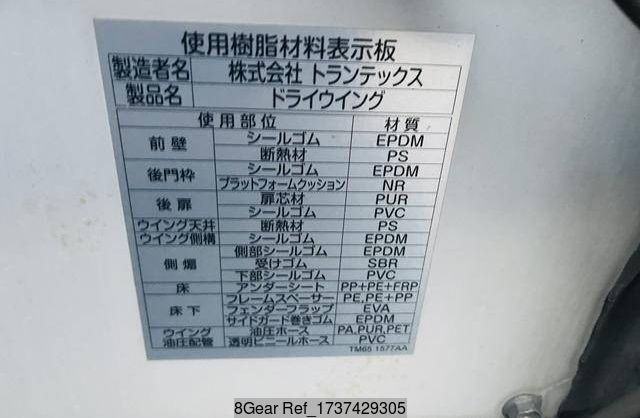 使用樹脂材料表示板
製造者名 株式会社 トランテックス
製品名 ドライウイング
使用部位 材質
前壁 シールゴム EPDM
断熱材 PS
後門枠 シールゴム EPDM
プラットフォームクッション NR
後扉 扉芯材 PUR
シールゴム PVC
ウイング天井 断熱材 PS
ウイング側構 シールゴム EPDM
側煽 側部シールゴム EPDM
受けゴム SBR
下部シールゴム PVC
床 アンダーシート PP+PE+FRP
床下 フレームスペーサー PE,PE+PP
フェンダーフラップ EVA
サイドガード巻きゴム EPDM
ウイング 油圧ホース PA,PUR,PET
油圧配管 透明ビニールホース PVC
TM65 1577AA
8Gear Ref_1737429305